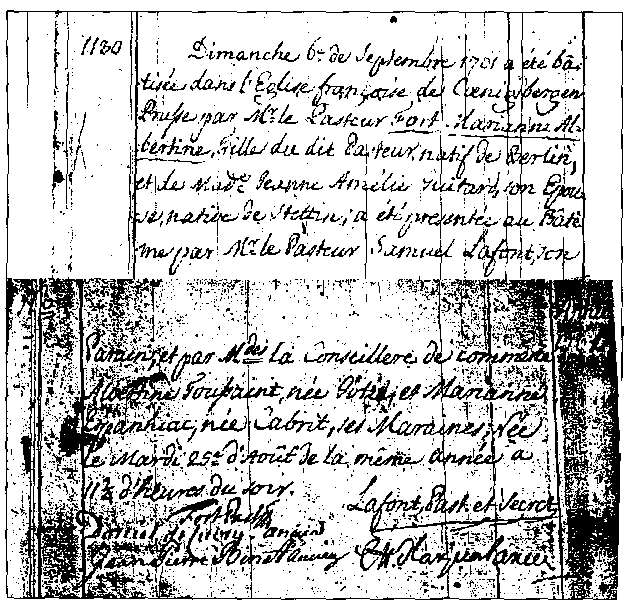 1130
Dimanche 6.e de Septembre 1781 a été ba-
tisée dans l'Eglise françoise de Cœnigsberg en
Prusse par Mr. le Pasteur Fort Marianne Al-
bertine, Fille du dit Pasteur, natif de Berlin,
et de Mad.e Jeanne Amélie Guitard, son Epou-
se, native de Stettin; a été présentée au Batê-
me par Mr. le Pasteur Samuel Lafont, son
Parain, et par Mdes la Conseillere de commerce
Albertine Toussaint, née et Marianne
née Cabrit, ses Maraines. Née
le Mardi 25.e d'Août de la même année a
11½ d'heures du soir.
Lafont, Past. et Secret.
Fort Past.
Daniel Ancien
Jean Pierre Ancien